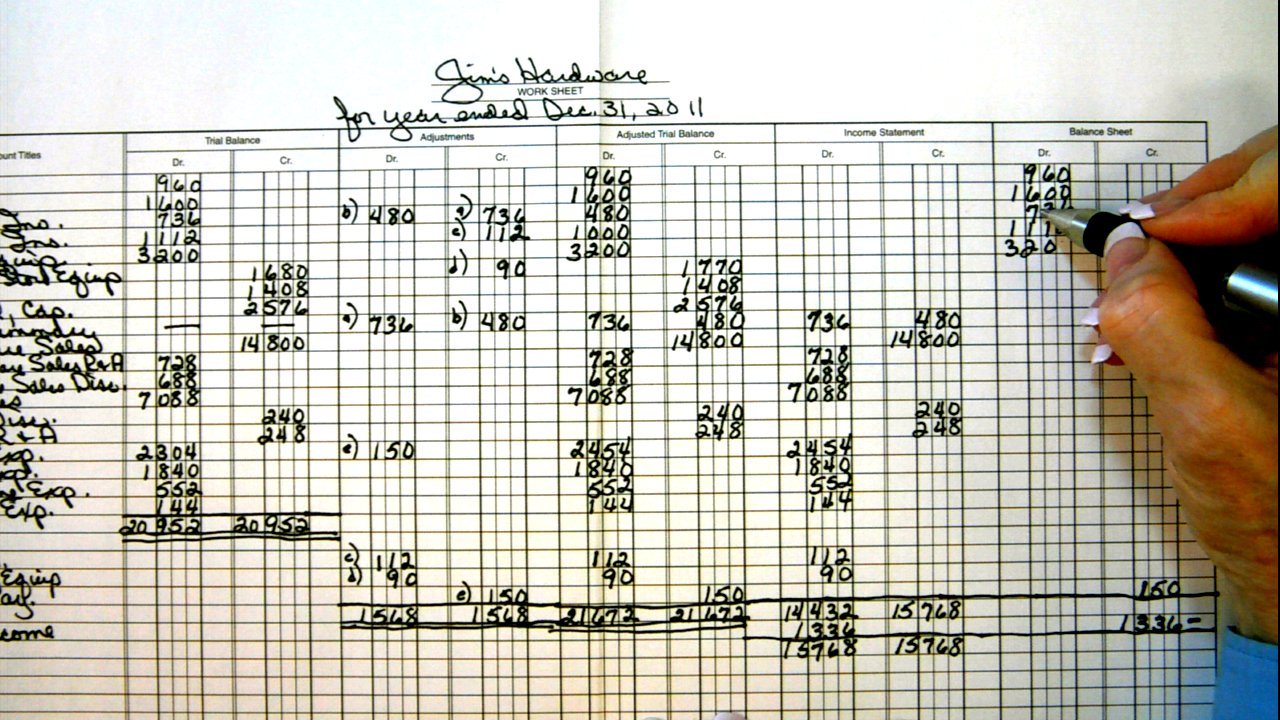 Jim's Hardware
WORK SHEET
for year ended Dec. 31, 2011
Trial Balance Adjustments Adjusted Trial Balance Income Statement Balance Sheet
unt Titles Dr. Cr. Dr. Cr. Dr. Cr. Dr. Cr. Dr. Cr.
960 960 960
1600 1600 1600
Ins. 736 b) 480 a) 736 480
Ins. 1112 c) 112 1000
Equip. 3200 3200 320
Store Equip 1680 d) 90 1770
1408 1408
, Cap. 2576 2576
— — a) 736 b) 480 736 480 736 480
Sales 14800 14800 14800
Sales R+A 728 728 728
Sales Disc. 688 688 688
es 7088 7088 7088
Disc. 240 240 240
R+A 248 248 248
Exp. 2304 e) 150 2454 2454
Exp. 1840 1840 1840
Exp. 552 552 552
Exp. 144 144 144
20952 20952
c) 112 112 112
Equip d) 90 90 90
ay. e) 150 150 150
1568 1568 21672 21672 14432 15768
come 1336 1336-
15768 15768